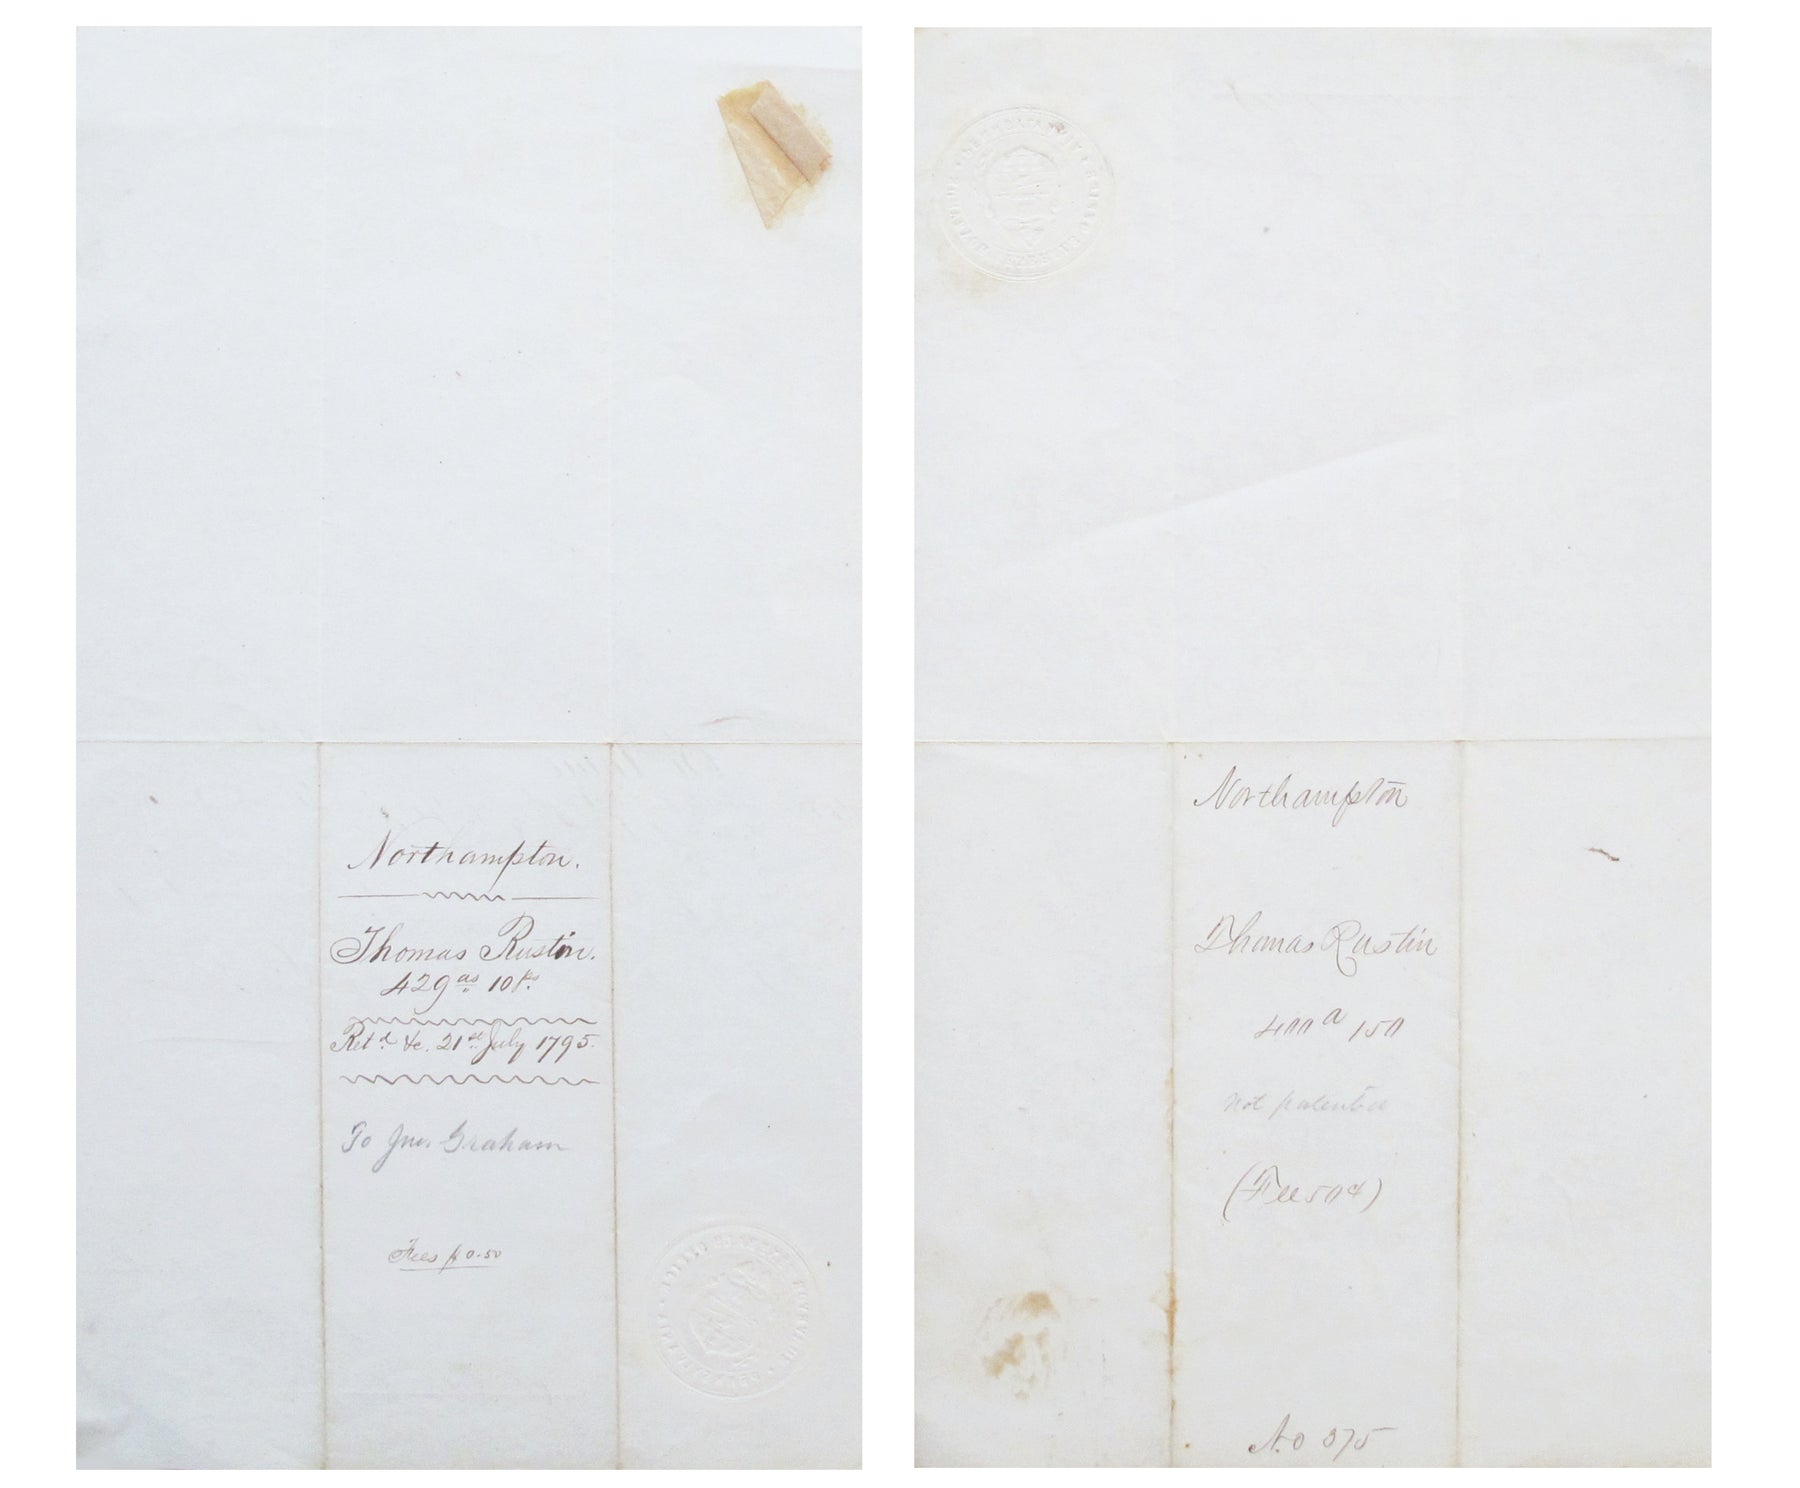 Northampton.
Thomas Rustin.
429 as 10 ps.
Ret.d &c. 21st July 1795.
To Jno. Graham
Fees $0.50
Northampton
Thomas Rustin
400 a 150
not patented
(Fee 50 c)
No 375